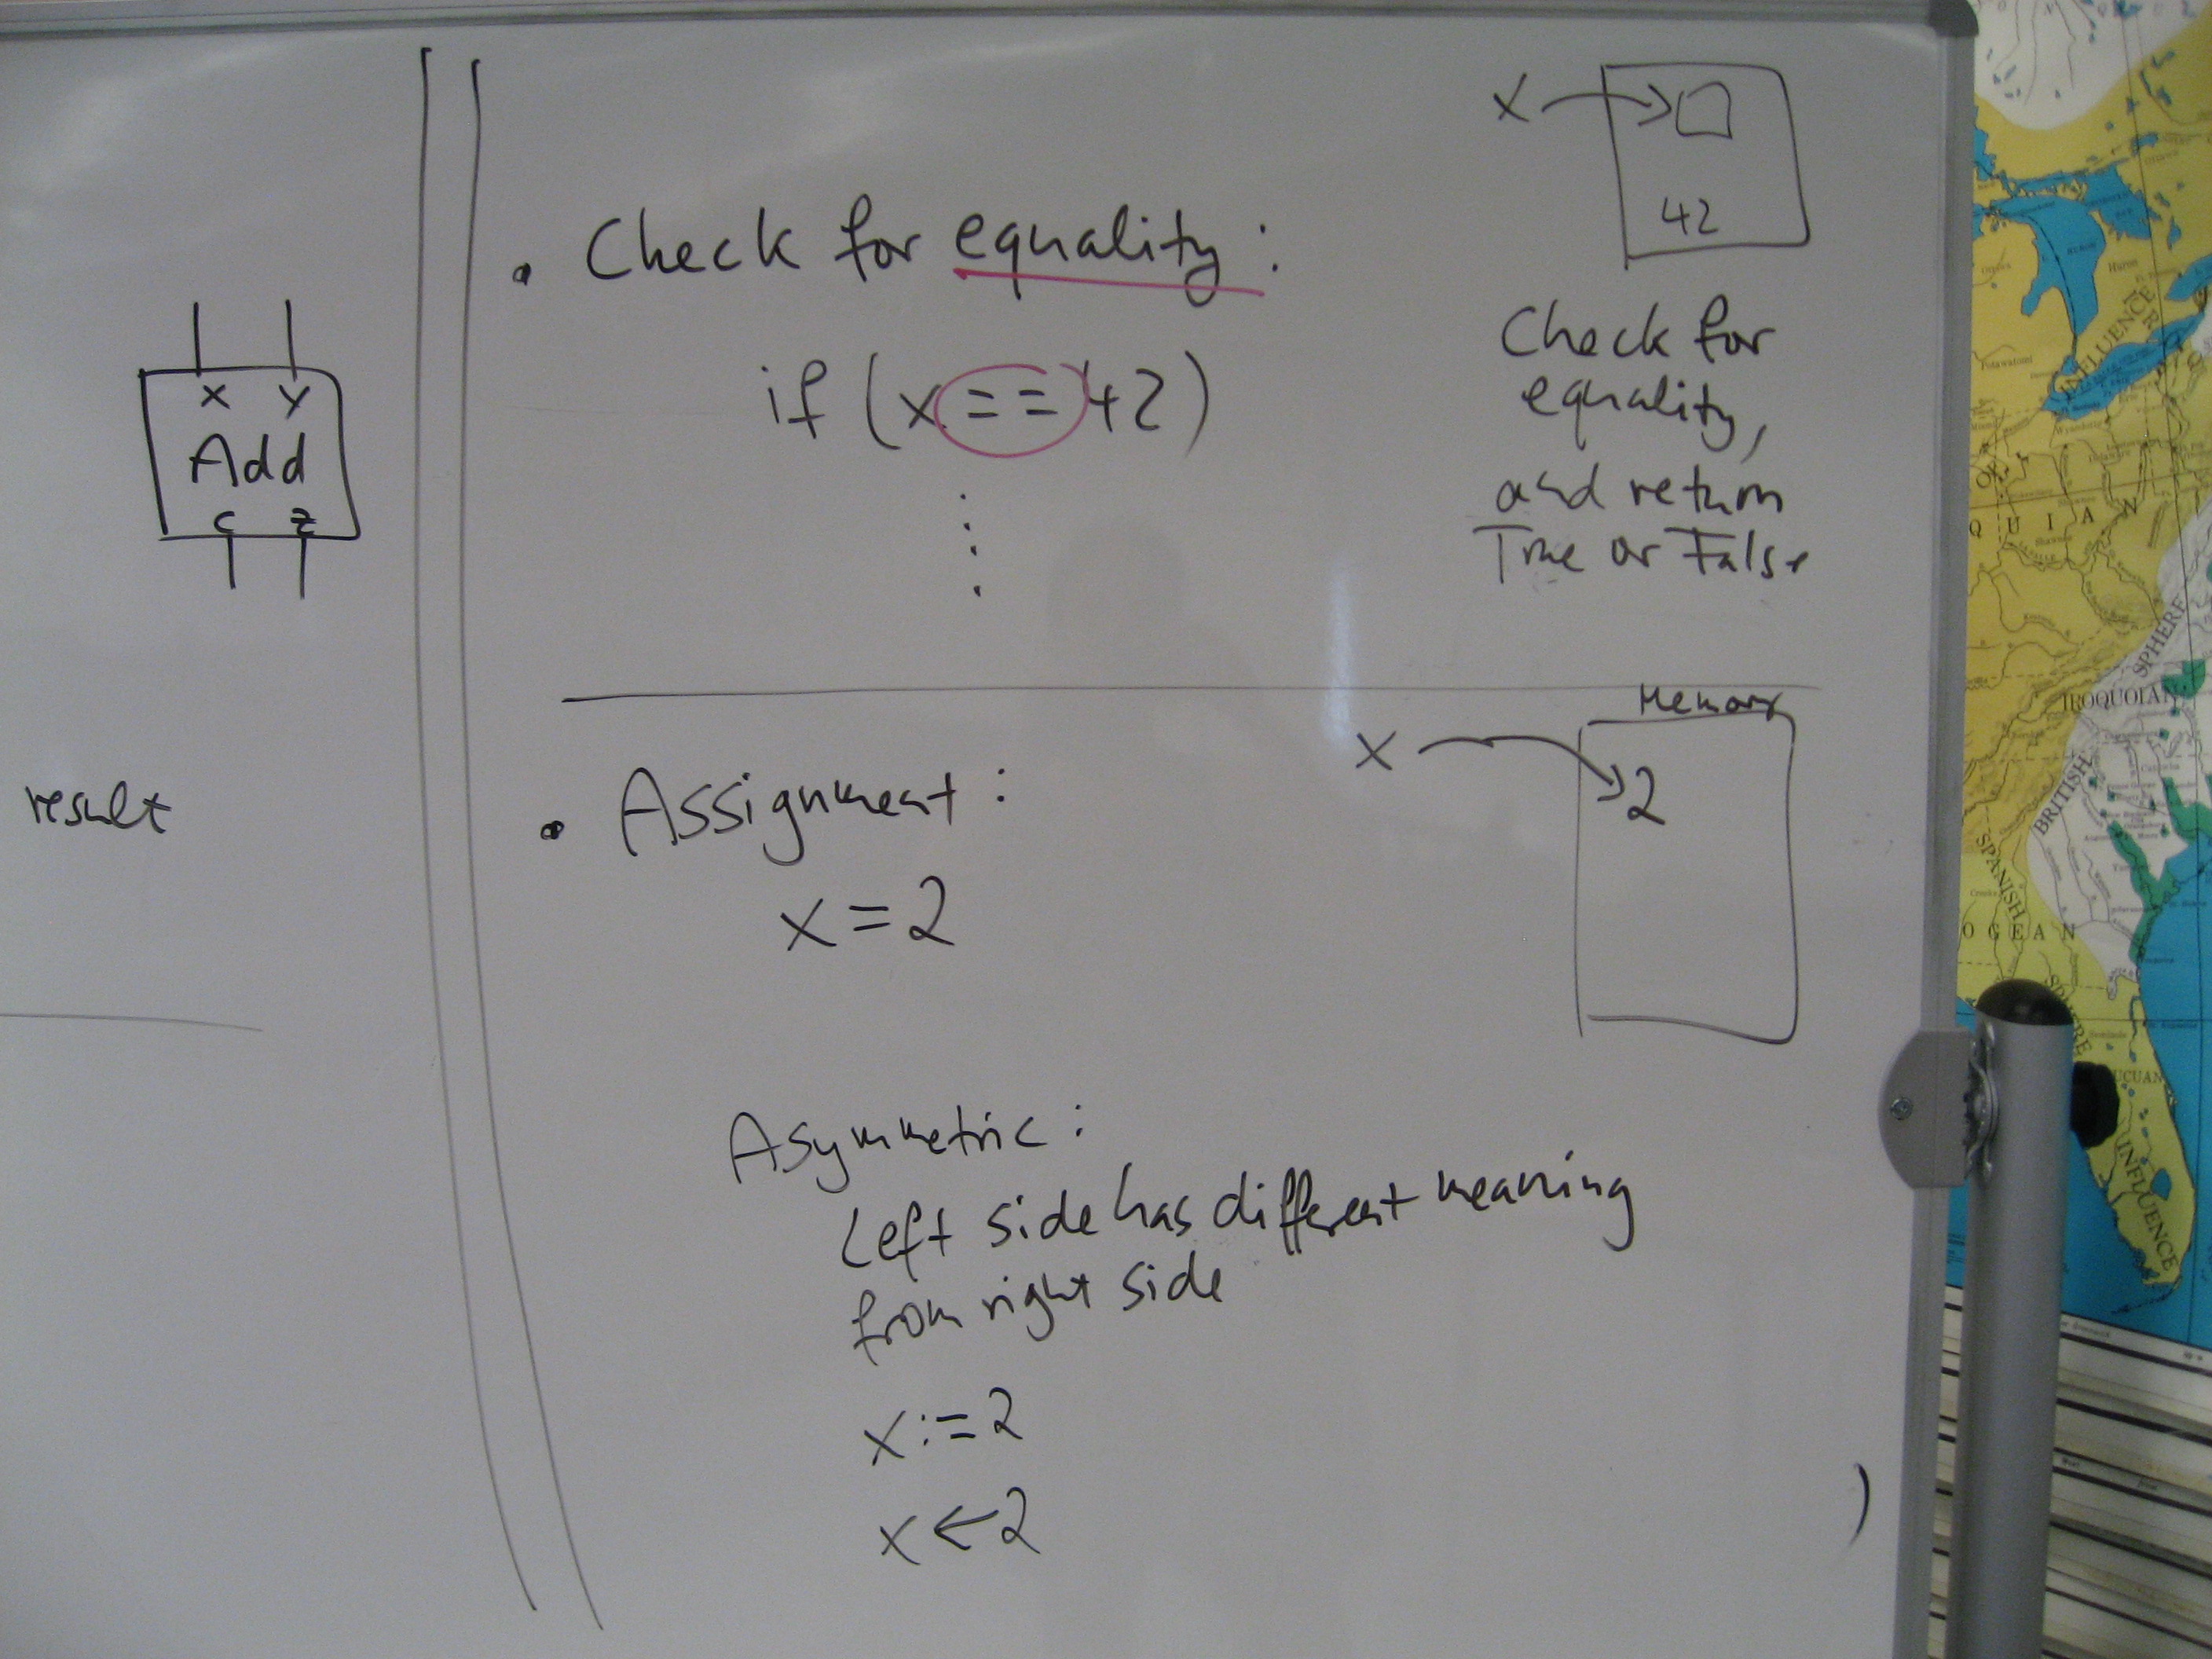 x y
Add
c z
result
• Check for equality:
if (x == 42)
x
42
Check for
equality,
and return
True or False
• Assignment:
x = 2
Memory
x
2
Asymmetric:
Left side has different meaning
from right side
x := 2
x ← 2
)
INFLUENCE
QUIAN
SPHERE
IROQUOIAN
BRITISH
SPANISH
OGEAN
SPHERE
UCUAN
INFLUENCE